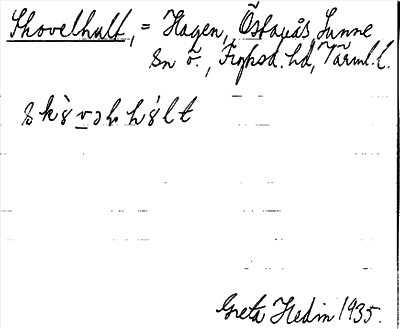 Skovelhult, = Hagen, Östagås, Sunne
sn ö., Fryksd. hd, Värml. l.
Greta Hedin 1935.